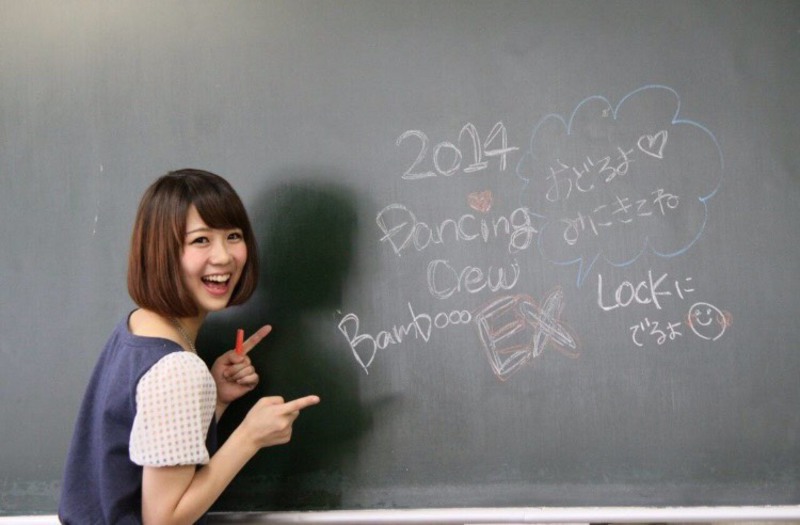 2014
Dancing
Crew
Bambooo EX
おどるよ♡
みにきてね
Lockに
でるよ